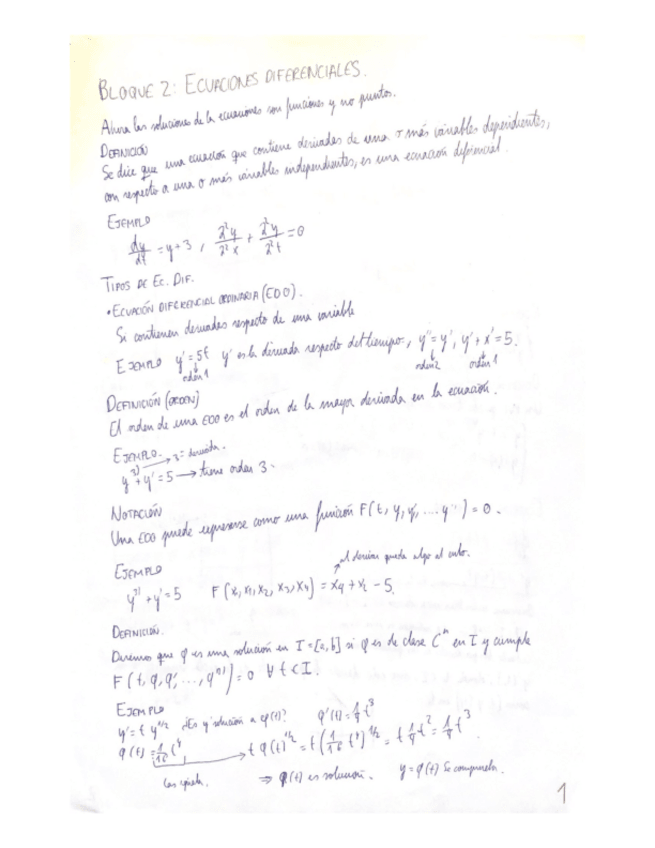 BLOQUE 2: ECUACIONES DIFERENCIALES.
Ahora las soluciones de la ecuaciones son funciones y no puntos.
DEFINICIÓN
Se dice que una ecuación que contiene derivadas de una o más variables dependientes,
con respecto a una o más variables independientes, es una ecuación diferencial.
EJEMPLO
dy/dt = y+3 , ∂²y/∂²x + ∂²y/∂²t = 0
TIPOS DE EC. DIF.
• ECUACIÓN DIFERENCIAL ORDINARIA (EDO).
Si contienen derivadas respecto de una variable
EJEMPLO y' = 5t y' es la derivada respecto del tiempo, y'' = y', y' + x' = 5.
orden 1 orden 2 orden 1
DEFINICIÓN (ORDEN)
El orden de una EDO es el orden de la mayor derivada en la ecuación.
EJEMPLO. 3 = derivada.
y³⁾ + y' = 5 → tiene orden 3.
NOTACIÓN
Una EDO puede expresarse como una función F(t, y, y', ... yⁿ⁾) = 0.
al derivar queda algo al cubo.
EJEMPLO
y³⁾ + y' = 5 F(x, x₁, x₂, x₃, x₄) = x₄ + x₂ - 5.
DEFINICIÓN.
Diremos que φ es una solución en I = [a, b] si φ es de clase Cⁿ en I y cumple
F(t, φ, φ', ..., φⁿ⁾) = 0 ∀ t ∈ I.
EJEMPLO
y' = t y^1/2 ¿Es y solución a φ(t)? φ'(t) = 1/4 t³
φ(t) = 1/16 t⁴ → t φ(t)^1/2 = t (1/16 t⁴)^1/2 = t 1/4 t² = 1/4 t³.
⇒ φ(t) es solución. y = φ(t) Se comprueba.
1